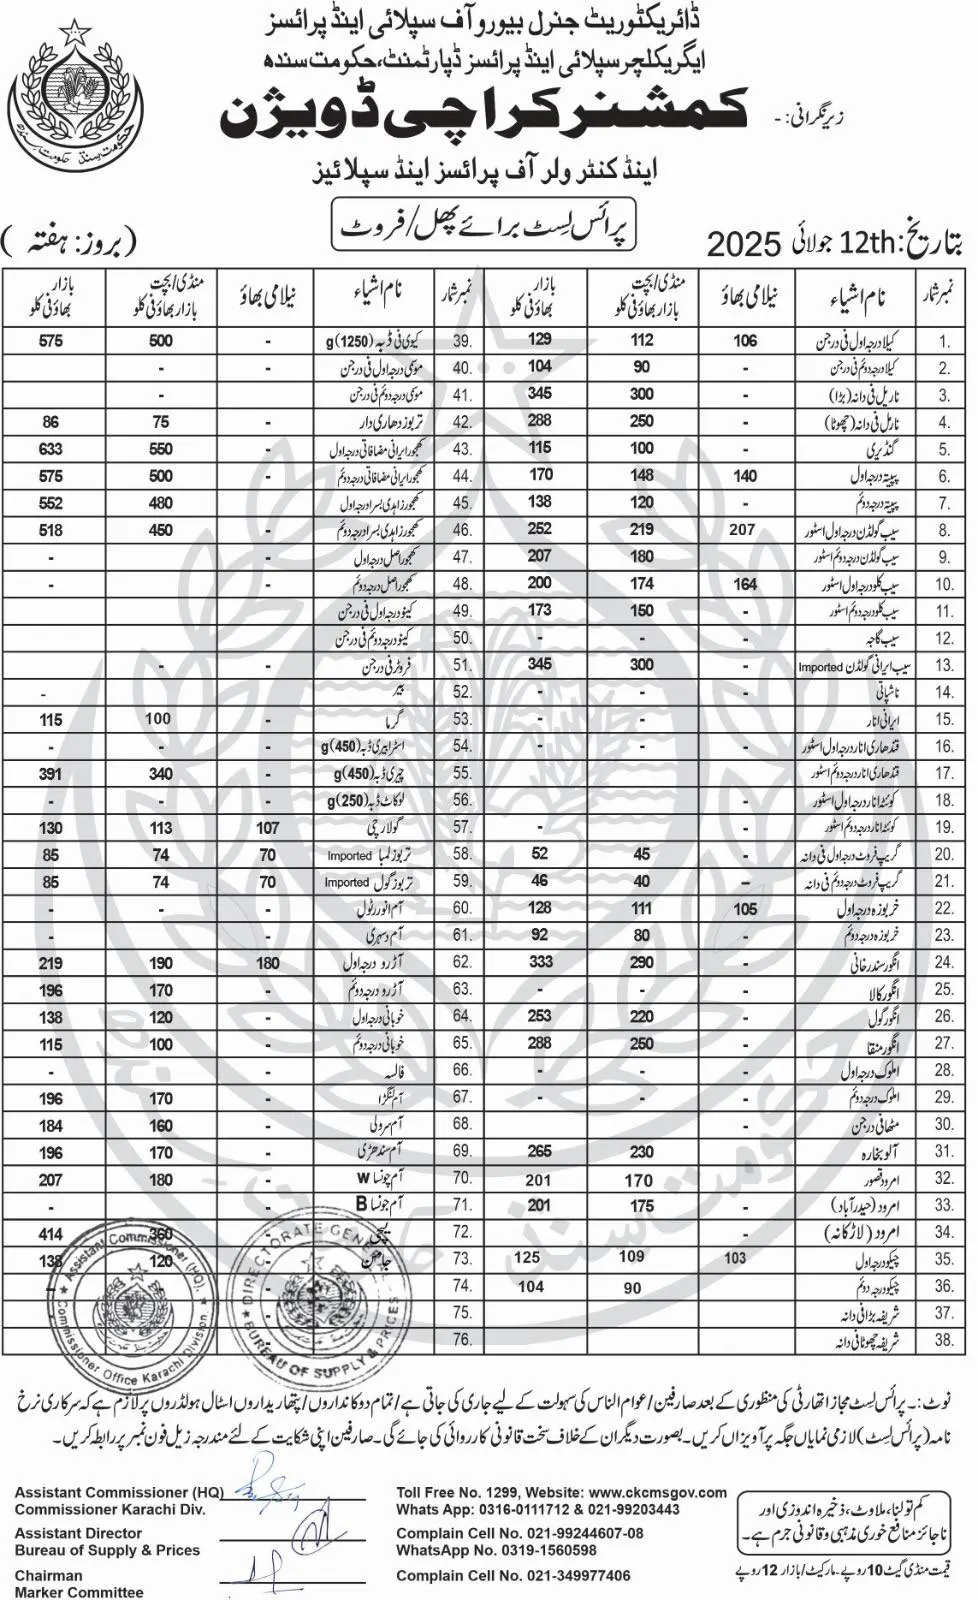 ڈائریکٹوریٹ جنرل بیورو آف سپلائی اینڈ پرائسز
ایگریکلچر سپلائی اینڈ پرائسز ڈپارٹمنٹ، حکومت سندھ
زیر نگرانی: -
کمشنر کراچی ڈویژن
اینڈ کنٹرولر آف پرائسز اینڈ سپلائیز
پرائس لسٹ برائے پھل/فروٹ
بتاریخ: 12th جولائی 2025
(بروز: ہفتہ)
نمبر شمار نام اشیاء نیلامی بھاؤ منڈی/بچت بازار بھاؤ فی کلو بازار بھاؤ فی کلو نمبر شمار نام اشیاء نیلامی بھاؤ منڈی/بچت بازار بھاؤ فی کلو بازار بھاؤ فی کلو
1. کیلا درجہ اول فی درجن 106 112 129 39. کیوی فی ڈبہ (1250)g - 500 575
2. کیلا درجہ دوئم فی درجن - 90 104 40. موسمی درجہ اول فی درجن - - -
3. ناریل فی دانہ (بڑا) - 300 345 41. موسمی درجہ دوئم فی درجن -
4. ناریل فی دانہ (چھوٹا) - 250 288 42. تربوز دھاری دار - 75 86
5. گنڈیری - 100 115 43. کھجور ایرانی مضافاتی درجہ اول - 550 633
6. پپیتہ درجہ اول 140 148 170 44. کھجور ایرانی مضافاتی درجہ دوئم - 500 575
7. پپیتہ درجہ دوئم - 120 138 45. کھجور زاہدی بسرا درجہ اول - 480 552
8. سیب گولڈن درجہ اول اسٹور 207 219 252 46. کھجور زاہدی بسرا درجہ دوئم - 450 518
9. سیب گولڈن درجہ دوئم اسٹور - 180 207 47. کھجور اصل درجہ اول - - -
10. سیب کلو درجہ اول اسٹور 164 174 200 48. کھجور اصل درجہ دوئم - - -
11. سیب کلو درجہ دوئم اسٹور - 150 173 49. کینو درجہ اول فی درجن -
12. سیب گاجہ - - - 50. کینو درجہ دوئم فی درجن
13. سیب ایرانی گولڈن Imported - 300 345 51. فروٹر فی درجن - - -
14. ناشپاتی - - - 52. بیر -
15. ایرانی انار - - - 53. گرما - 100 115
16. قندھاری انار درجہ اول اسٹور - 54. اسٹرابیری ڈبہ (450)g - - -
17. قندھاری انار درجہ دوئم اسٹور - 55. چیری ڈبہ (450)g - 340 391
18. کوئٹہ انار درجہ اول اسٹور - 56. لوکاٹ ڈبہ (250)g - - -
19. کوئٹہ انار درجہ دوئم اسٹور - - - 57. گولارچی 107 113 130
20. گریپ فروٹ درجہ اول فی دانہ - 45 52 58. تربوز لمبا Imported 70 74 85
21. گریپ فروٹ درجہ دوئم فی دانہ - 40 46 59. تربوز گول Imported 70 74 85
22. خربوزہ درجہ اول 105 111 128 60. آم انور رٹول - - -
23. خربوزہ درجہ دوئم - 80 92 61. آم دسہری - -
24. انگور سندرخانی - 290 333 62. آڑو درجہ اول 180 190 219
25. انگور کالا - - - 63. آڑو درجہ دوئم - 170 196
26. انگور گول - 220 253 64. خوبانی درجہ اول - 120 138
27. انگور منقا - 250 288 65. خوبانی درجہ دوئم - 100 115
28. املوک درجہ اول - - - 66. فالسہ - - -
29. املوک درجہ دوئم - - - 67. آم لنگڑا - 170 196
30. مٹھا فی درجن - - - 68. آم سرولی - 160 184
31. آلو بخارہ - 230 265 69. آم سندھڑی - 170 196
32. امرود قصور - 170 201 70. آم چونسا W - 180 207
33. امرود (حیدرآباد) - 175 201 71. آم چونسا B - -
34. امرود (لاڑکانہ) - 72. لیچی - 360 414
35. چیکو درجہ اول 103 109 125 73. جامن - 120 138
36. چیکو درجہ دوئم - 90 104 74. - -
37. شریفہ بڑا فی دانہ 75. -
38. شریفہ چھوٹا فی دانہ 76.
Assistant Commissioner (HQ)
Commissioner Office Karachi Division.
DIRECTORATE GENERAL
BUREAU OF SUPPLY & PRICES
نوٹ: - پرائس لسٹ مجاز اتھارٹی کی منظوری کے بعد صارفین/عوام الناس کی سہولت کے لیے جاری کی جاتی ہے/تمام دوکانداروں/پتھاریداروں اسٹال ہولڈروں پر لازم ہے کہ سرکاری نرخ
نامہ (پرائس لسٹ) لازمی نمایاں جگہ پر آویزاں کریں۔ بصورت دیگر ان کے خلاف سخت قانونی کارروائی کی جائے گی۔ صارفین اپنی شکایت کے لئے مندرجہ زیل فون نمبر پر رابطہ کریں۔
Assistant Commissioner (HQ)
Commissioner Karachi Div.
Assistant Director
Bureau of Supply & Prices
Chairman
Marker Committee
Toll Free No. 1299, Website: www.ckcmsgov.com
Whats App: 0316-0111712 & 021-99203443
Complain Cell No. 021-99244607-08
WhatsApp No. 0319-1560598
Complain Cell No. 021-349977406
کم تولنا، ملاوٹ، ذخیرہ اندوزی اور
ناجائز منافع خوری مذہبی و قانونی جرم ہے۔
قیمت منڈی گیٹ 10 روپے۔ مارکیٹ/بازار 12 روپے